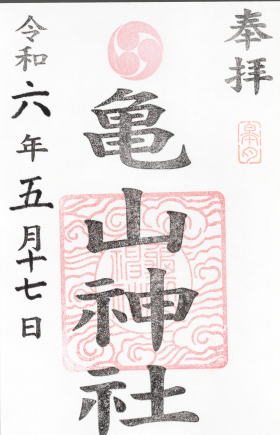 奉拝
亀山神社
令和六年五月十七日